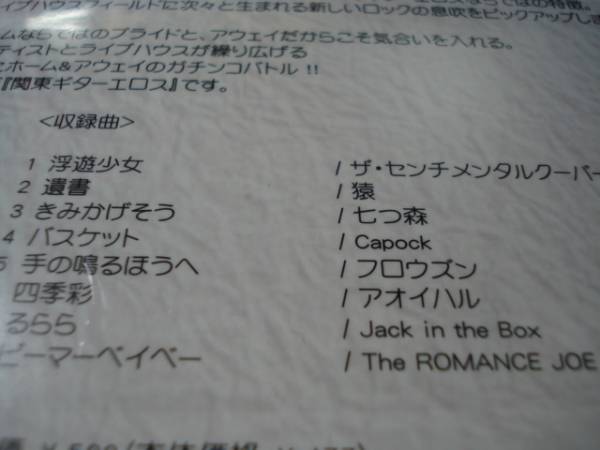 イブハウスフィールドに次々と生まれる新しいロックの息吹をピックアップし
ムならではのプライドと、アウェイだからこそ気合いを入れる。
ティストとライブハウスが繰り広げる
ホーム&アウェイのガチンコバトル !!
『関東ギターエロス』です。
<収録曲>
1 浮遊少女 / ザ・センチメンタルクーパー
2 遺書 / 猿
3 きみかげそう / 七つ森
4 バスケット / Capock
5 手の鳴るほうへ / フロウズン
四季彩 / アオイハル
るらら / Jack in the Box
ビーマーベイベー / The ROMANCE JOE